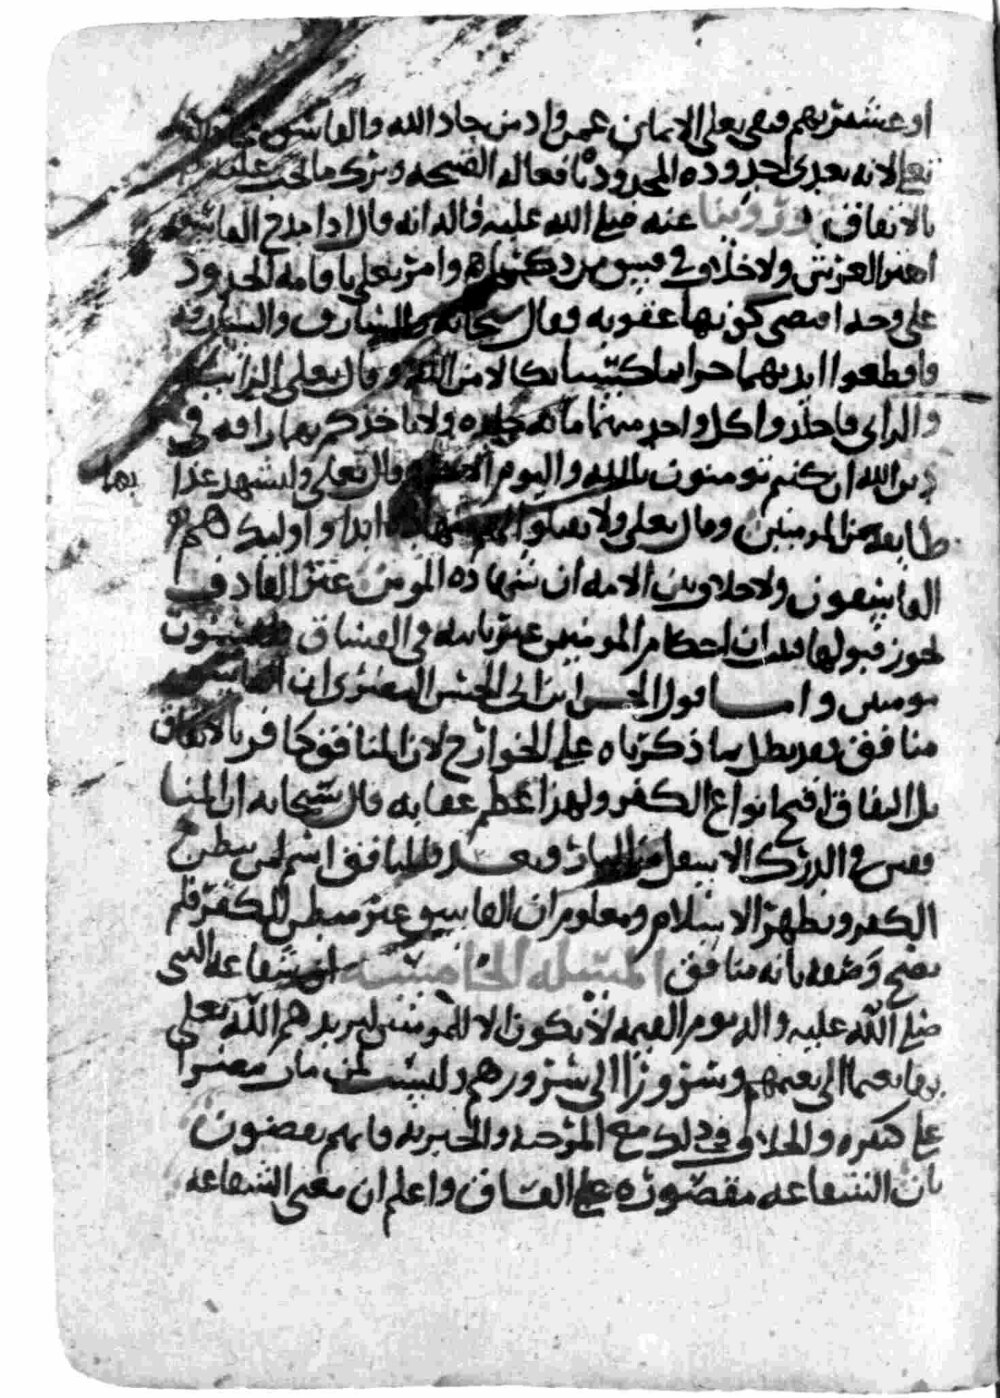 او عشيرتهم فنفى تعلى الايمان عمن واد من حاد الله والفاسق
تعلى لانه تعدى حدوده المحدوده بافعاله القبيحه وترك ما يجب عليه
بالاتفاق وروينا عنه صلى الله عليه وآله انه قال اذا مدح الفاسق
اهتز العرش ولا خلاف في فسق من ذكرناهم وامر تعلى باقامه الحدود
على وجه اقتضى كونها عقوبه فقال سبحانه والسارق والسارقه
فاقطعوا ايديهما جزاء بما كسبا نكالا من الله وقال تعلى الزانيه
والزاني فاجلدوا كل واحد منهما مائه جلده ولا تاخذكم بهما رافه في
دين الله ان كنتم تومنون بالله واليوم الاخر وقال تعلى وليشهد عذابهما
طايفه من المومنين وقال تعلى ولا تقبلوا لهم شهاده ابدا واوليك هم
الفاسقون ولا خلاف بين الامه ان شهاده المومن غير القاذف
يجوز قبولها فبان احكام المومنين غير ثابته في الفساق فليسوا
مومنين واما قول الحسن ابن ابي الحسن البصري ان الفاسق
منافق فقد بطل بما ذكرناه على الخوارج لان المنافق كافر بالاتفاق
بل النفاق اقبح انواع الكفر ولهذا عظم عقابه قال سبحانه ان المنا
فقين في الدرك الاسفل من النار وبعد فالمنافق اسم لمن يبطن
الكفر ويظهر الاسلام ومعلوم ان الفاسق غير مبطن للكفر فلم
يصح وصفه بانه منافق المسئله الخامسه ان شفاعه النبي
صلى الله عليه واله يوم القيمه لا تكون الا للمومنين ليزيدهم الله تعلى
بها نعيما الى نعيمهم وسرورا الى سرورهم وليست لمن مات مصرا
على كبيره والخلاف في ذلك مع المرجئه والجبريه فانهم يقضون
بان الشفاعه مقصوره على الفساق واعلم ان معنى الشفاعه